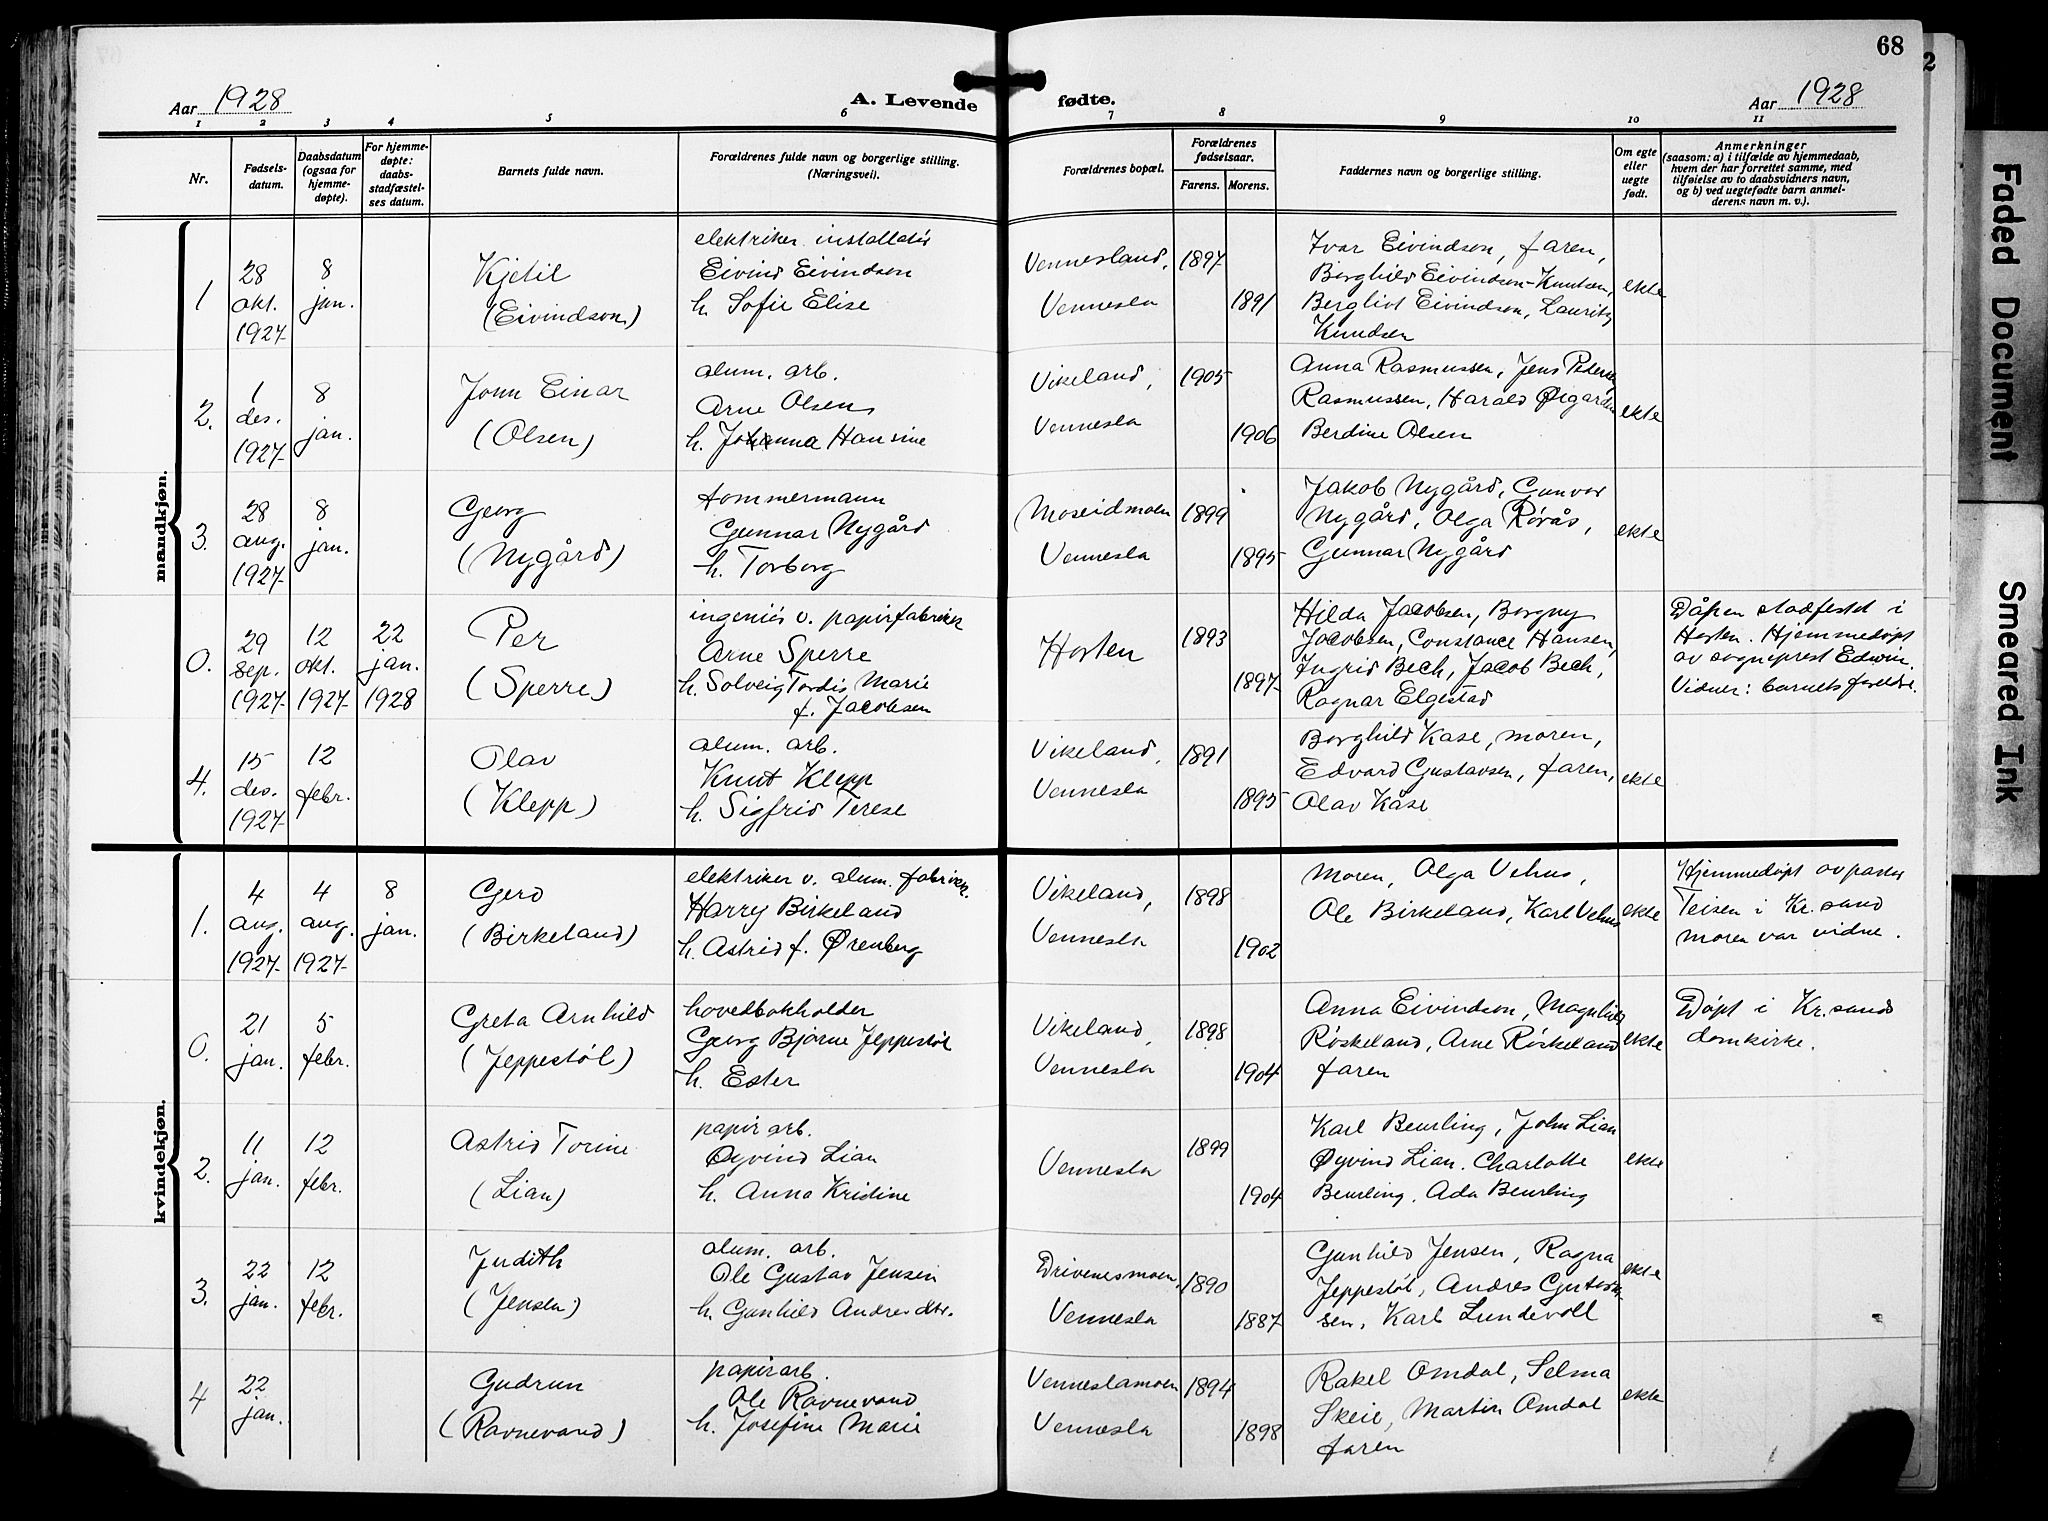 68
2
Aar 1928
A. Levende fødte.
Aar 1928
1 2 3 4 5 6 7 8 9 10 11
Nr.
Fødsels-
datum.
Daabsdatum
(ogsaa for
hjemme-
døpte).
For hjemme-
døpte:
daabs-
stadfæstel-
ses datum.
Barnets fulde navn.
Forældrenes fulde navn og borgerlige stilling.
(Næringsvei).
Forældrenes bopæl.
Forældrenes
fødselsaar.
Farens. Morens.
Faddernes navn og borgerlige stilling.
Om egte
eller
uegte
født.
Anmerkninger
(saasom: a) i tilfælde av hjemmedaab,
hvem der har forrettet samme, med
tilføielse av to daabsvidners navn,
og b) ved uegtefødte barn anmel-
derens navn m. v.).
mandkjøn.
1
28
okt.
1927
8
jan.
Kjetil
(Eivindson)
elektriker installatør
Eivind Eivindson
h. Sofie Elise
Vennesland,
Vennesla
1897
1891
Ivar Eivindson, faren,
Borghild Eivindson-Knutsen,
Bergliot Eivindson, Lauritz
Knudsen
ekte
2.
1
des.
1927
8
jan.
John Einar
(Olsen)
alum. arb.
Arne Olsen
h. Johanna Hansine
Vikeland,
Vennesla
1905
1906
Anna Rasmussen, Jens Pedersen
Rasmussen, Harald Øigarden
Berdine Olsen
ekte
3.
28
aug.
1927
8
jan.
Georg
(Nygård)
tommermann
Gunnar Nygård
h. Torborg
Moseidmoen
Vennesla
1899
1895
Jakob Nygård, Gunvor
Nygård, Olga Rørås,
Gunnar Nygård
ekte
0.
29
sep.
1927
12
okt.
1927
22
jan.
1928
Per
(Sperre)
ingeniør v. papirfabrikk
Arne Sperre
h. Solveig Tordis Marie
f. Jacobsen
Horten
1893
1897
Hilda Jacobsen, Borgny
Jacobsen, Constance Hansen,
Ingrid Bech, Jacob Bech,
Ragnar Elgestad
Dåpen stadfestet i
Horten. Hjemmedøpt
av sogneprest Edwin.
Vidner: barnets foreldre.
4.
15
des.
1927
12
febr.
Olav
(Klepp)
alum. arb.
Knut Klepp
h. Sigfrid Terese
Vikeland,
Vennesla
1891
1895
Borghild Kåse, moren,
Edvard Gustavsen, faren,
Olav Kåse
ekte
kvindekjøn.
1.
4
aug.
1927
4
aug.
1927
8
jan.
Gerd
(Birkeland)
elektriker v. alum. fabrikk.
Harry Birkeland
h. Astrid f. Ørenberg
Vikeland,
Vennesla
1898
1902
Moren, Olga Vehus,
Ole Birkeland, Karl Vehus
ekte
Hjemmedøpt av pastor
Teisen i Kr. sand
moren var vidne.
0.
21
jan.
5
febr.
Greta Arnhild
(Jeppestøl)
hovedbokholder
Georg Bjarne Jeppestøl
h. Ester
Vikeland,
Vennesla
1898
1904
Anna Eivindson, Magnhild
Røskeland, Arne Røskeland
faren
ekte
Døpt i Kr. sands
domkirke.
2.
11
jan.
12
febr.
Astrid Torine
(Lian)
papir arb.
Øyvind Lian
h. Anna Kristine
Vennesla
1899
1904
Karl Beurling, John Lian
Øyvind Lian. Charlotte
Beurling, Ada Beurling
ekte
3.
22
jan.
12
febr.
Judith
(Jensen)
alum. arb.
Ole Gustav Jensen
h. Gunhild Andresdtr.
Drivenesmoen,
Vennesla
1890
1887
Gunhild Jensen, Ragna
Jeppestøl, Andres Gustav-
sen, Karl Lundevoll
ekte
4
22
jan.
Gudrun
(Ravnevand)
papirarb.
Ole Ravnevand
h. Josefine Marie
Venneslamoen
Vennesla
1894
1898
Rakel Omdal, Selma
Skeie, Martin Omdal
faren
ekte
Faded Document
Smeared Ink